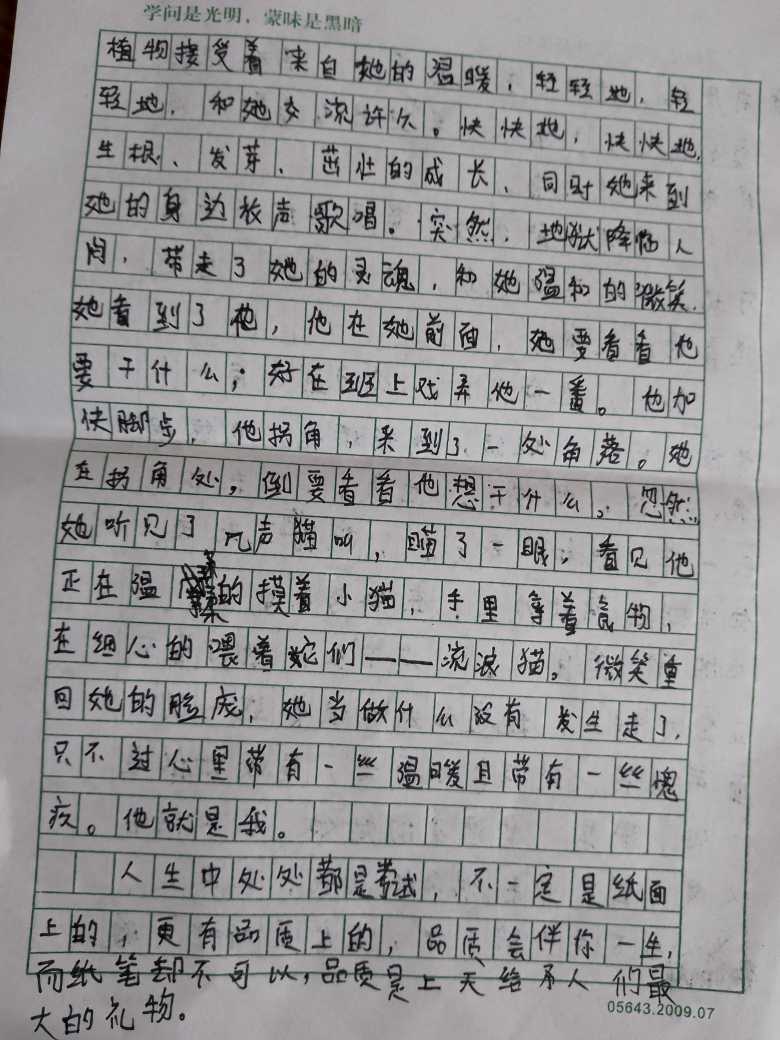 学问是光明，蒙昧是黑暗
植物接受着来自她的温暖，轻轻地，轻
轻地，和她交流许久。快快地，快快地，
生根、发芽、茁壮的成长，同时她来到
她的身边放声歌唱。突然，地狱降临人
间，带走了她的灵魂，和她温和的微笑，
她看到了他，他在她前面，她要看看他
要干什么；好在班上戏弄他一番。他加
快脚步，他拐角，来到了一处角落。她
在拐角处，倒要看看他想干什么，忽然
她听见了几声猫叫，瞄了一眼，看见他
正在温柔的摸着小猫，手里拿着食物，
在细心的喂着它们——流浪猫。微笑重
回她的脸庞，她当做什么没有发生走了，
只不过心里带有一丝温暖且带有一丝愧
疚。他就是我。
人生中处处都是考试，不一定是纸面
上的，更有品质上的，品质会伴你一生，
而纸笔却不可以，品质是上天给予人们最
大的礼物。
05643.2009.07